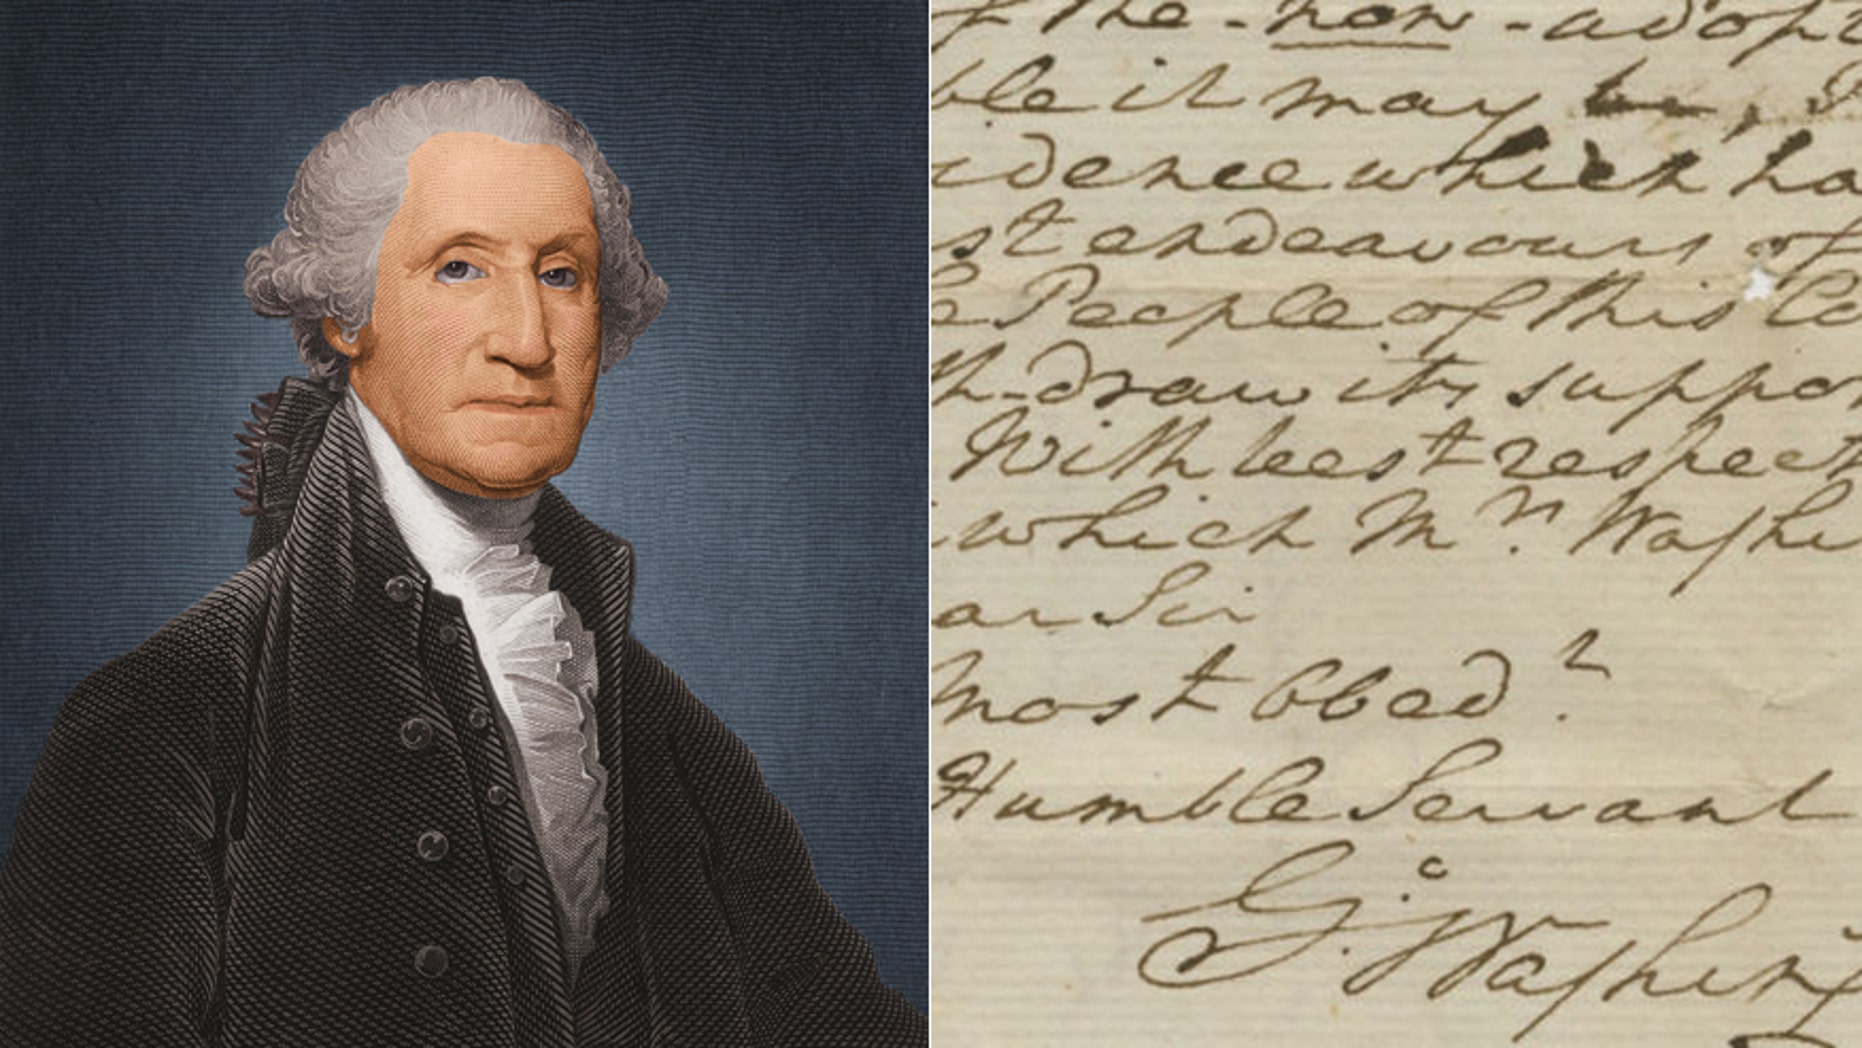 f the - non - adopt
ble it may be, I
idence which ha
st endeavours of
e People of this Co
th-draw its suppor
With best respect
which Mrs Washi
ar Sir
most Obedt
Humble Servant
Go: Washing